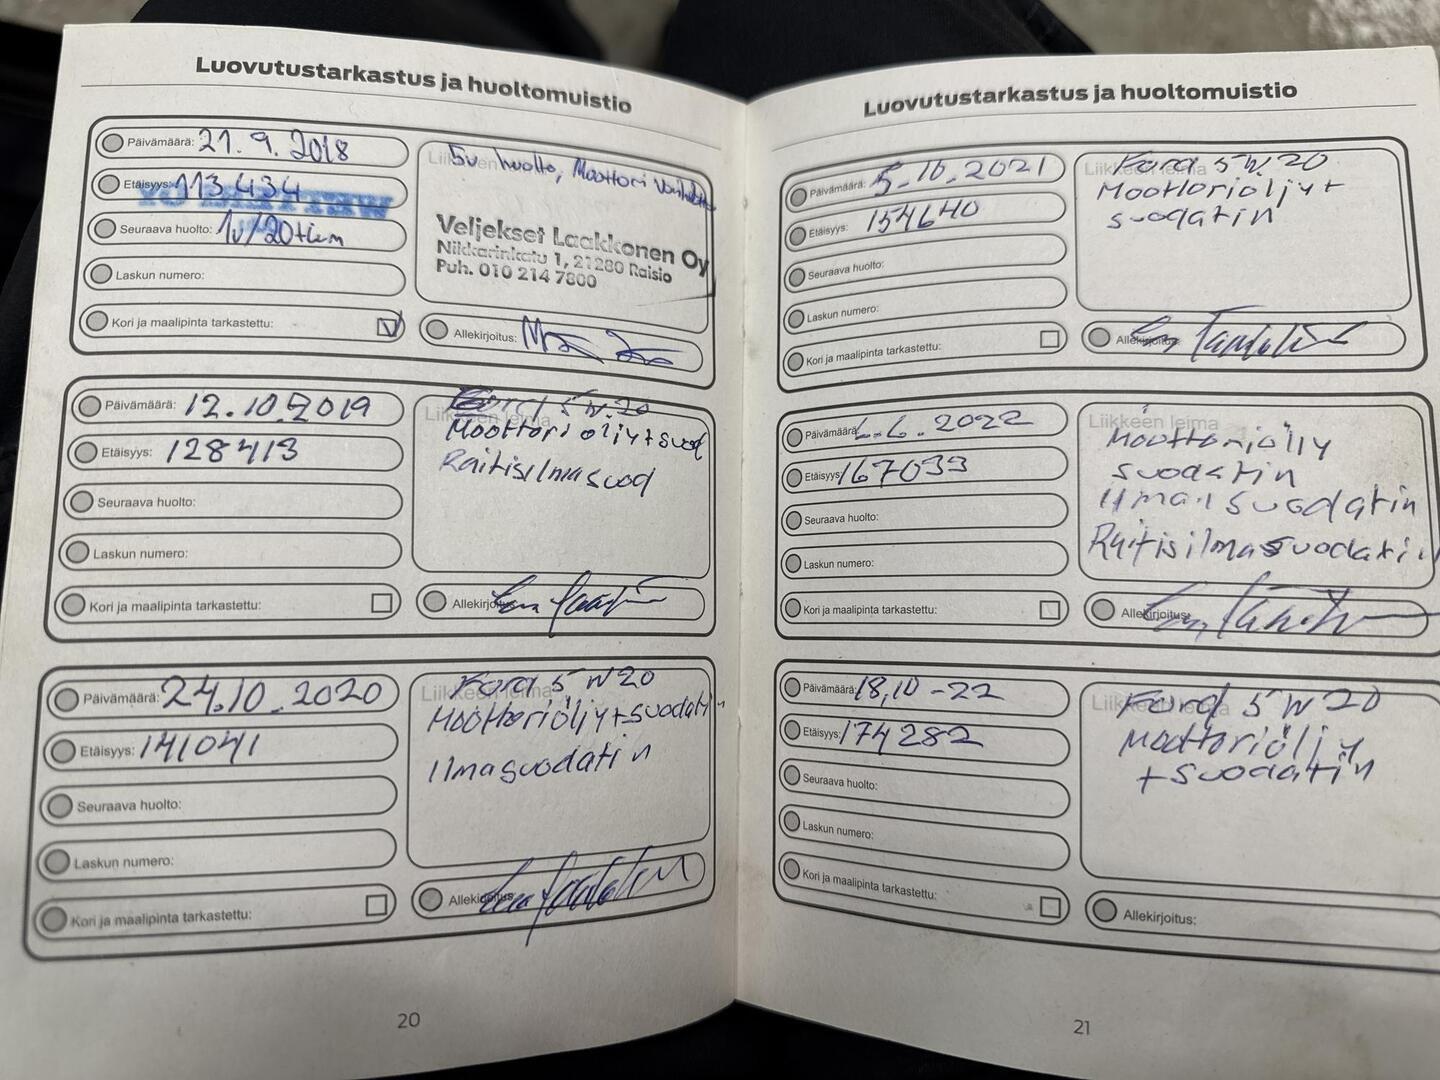 Luovutustarkastus ja huoltomuistio
Päivämäärä: 21.9.2018
Etäisyys: 113434
Seuraava huolto: 1v/20tkm
Laskun numero:
Kori ja maalipinta tarkastettu:
Liikkeen
5v huolto, Moottori
Veljekset Laakkonen Oy
Nikkarinkatu 1, 21280 Raisio
Puh. 010 214 7800
Allekirjoitus:
Päivämäärä: 12.10.2019
Etäisyys: 128413
Seuraava huolto:
Laskun numero:
Kori ja maalipinta tarkastettu:
Liikkeen leima
Ford 5W.20
Moottoriöljy+suod
Raitisilmasuod
Allekirjoitus:
Päivämäärä: 24.10.2020
Etäisyys: 141041
Seuraava huolto:
Laskun numero:
Kori ja maalipinta tarkastettu:
Liikkeen leima
Ford 5W20
Moottoriöljy+suodatin
Ilmasuodatin
Allekirjoitus:
20
Luovutustarkastus ja huoltomuistio
Päivämäärä: 5.10.2021
Etäisyys: 154640
Seuraava huolto:
Laskun numero:
Kori ja maalipinta tarkastettu:
Liikkeen leima
Ford 5W20
Moottoriöljy+
suodatin
Allekirjoitus:
Päivämäärä: 6.6.2022
Etäisyys: 167033
Seuraava huolto:
Laskun numero:
Kori ja maalipinta tarkastettu:
Liikkeen leima
Moottoriöljy
suodatin
Ilmansuodatin
Raitisilmasuodatin
Allekirjoitus:
Päivämäärä: 18,10-22
Etäisyys: 174282
Seuraava huolto:
Laskun numero:
Kori ja maalipinta tarkastettu:
Liikkeen leima
Ford 5W20
Moottoriöljy
+suodatin
Allekirjoitus:
21